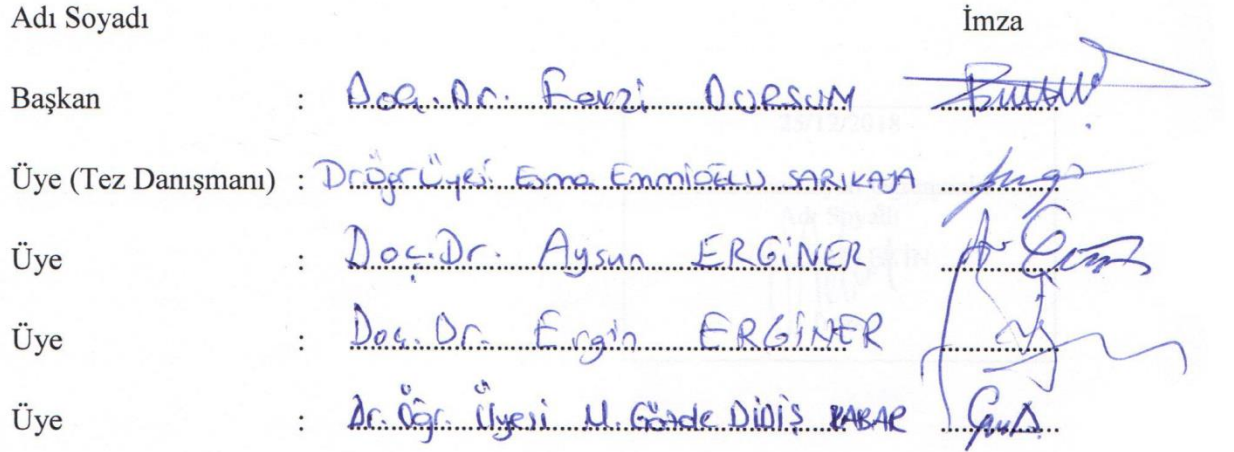 Adı Soyadı İmza
Başkan : Doç. Dr. Fevzi DURSUN
Üye (Tez Danışmanı) : Dr. Öğr. Üyesi Esma EmmiOĞLU SARIKAYA
Üye : Doç. Dr. Aysun ERGİNER
Üye : Doç. Dr. Ergin ERGİNER
Üye : Dr. Öğr. Üyesi M. Gözde DİDİŞ KABAR
25/12/2018
Adı Soyadı